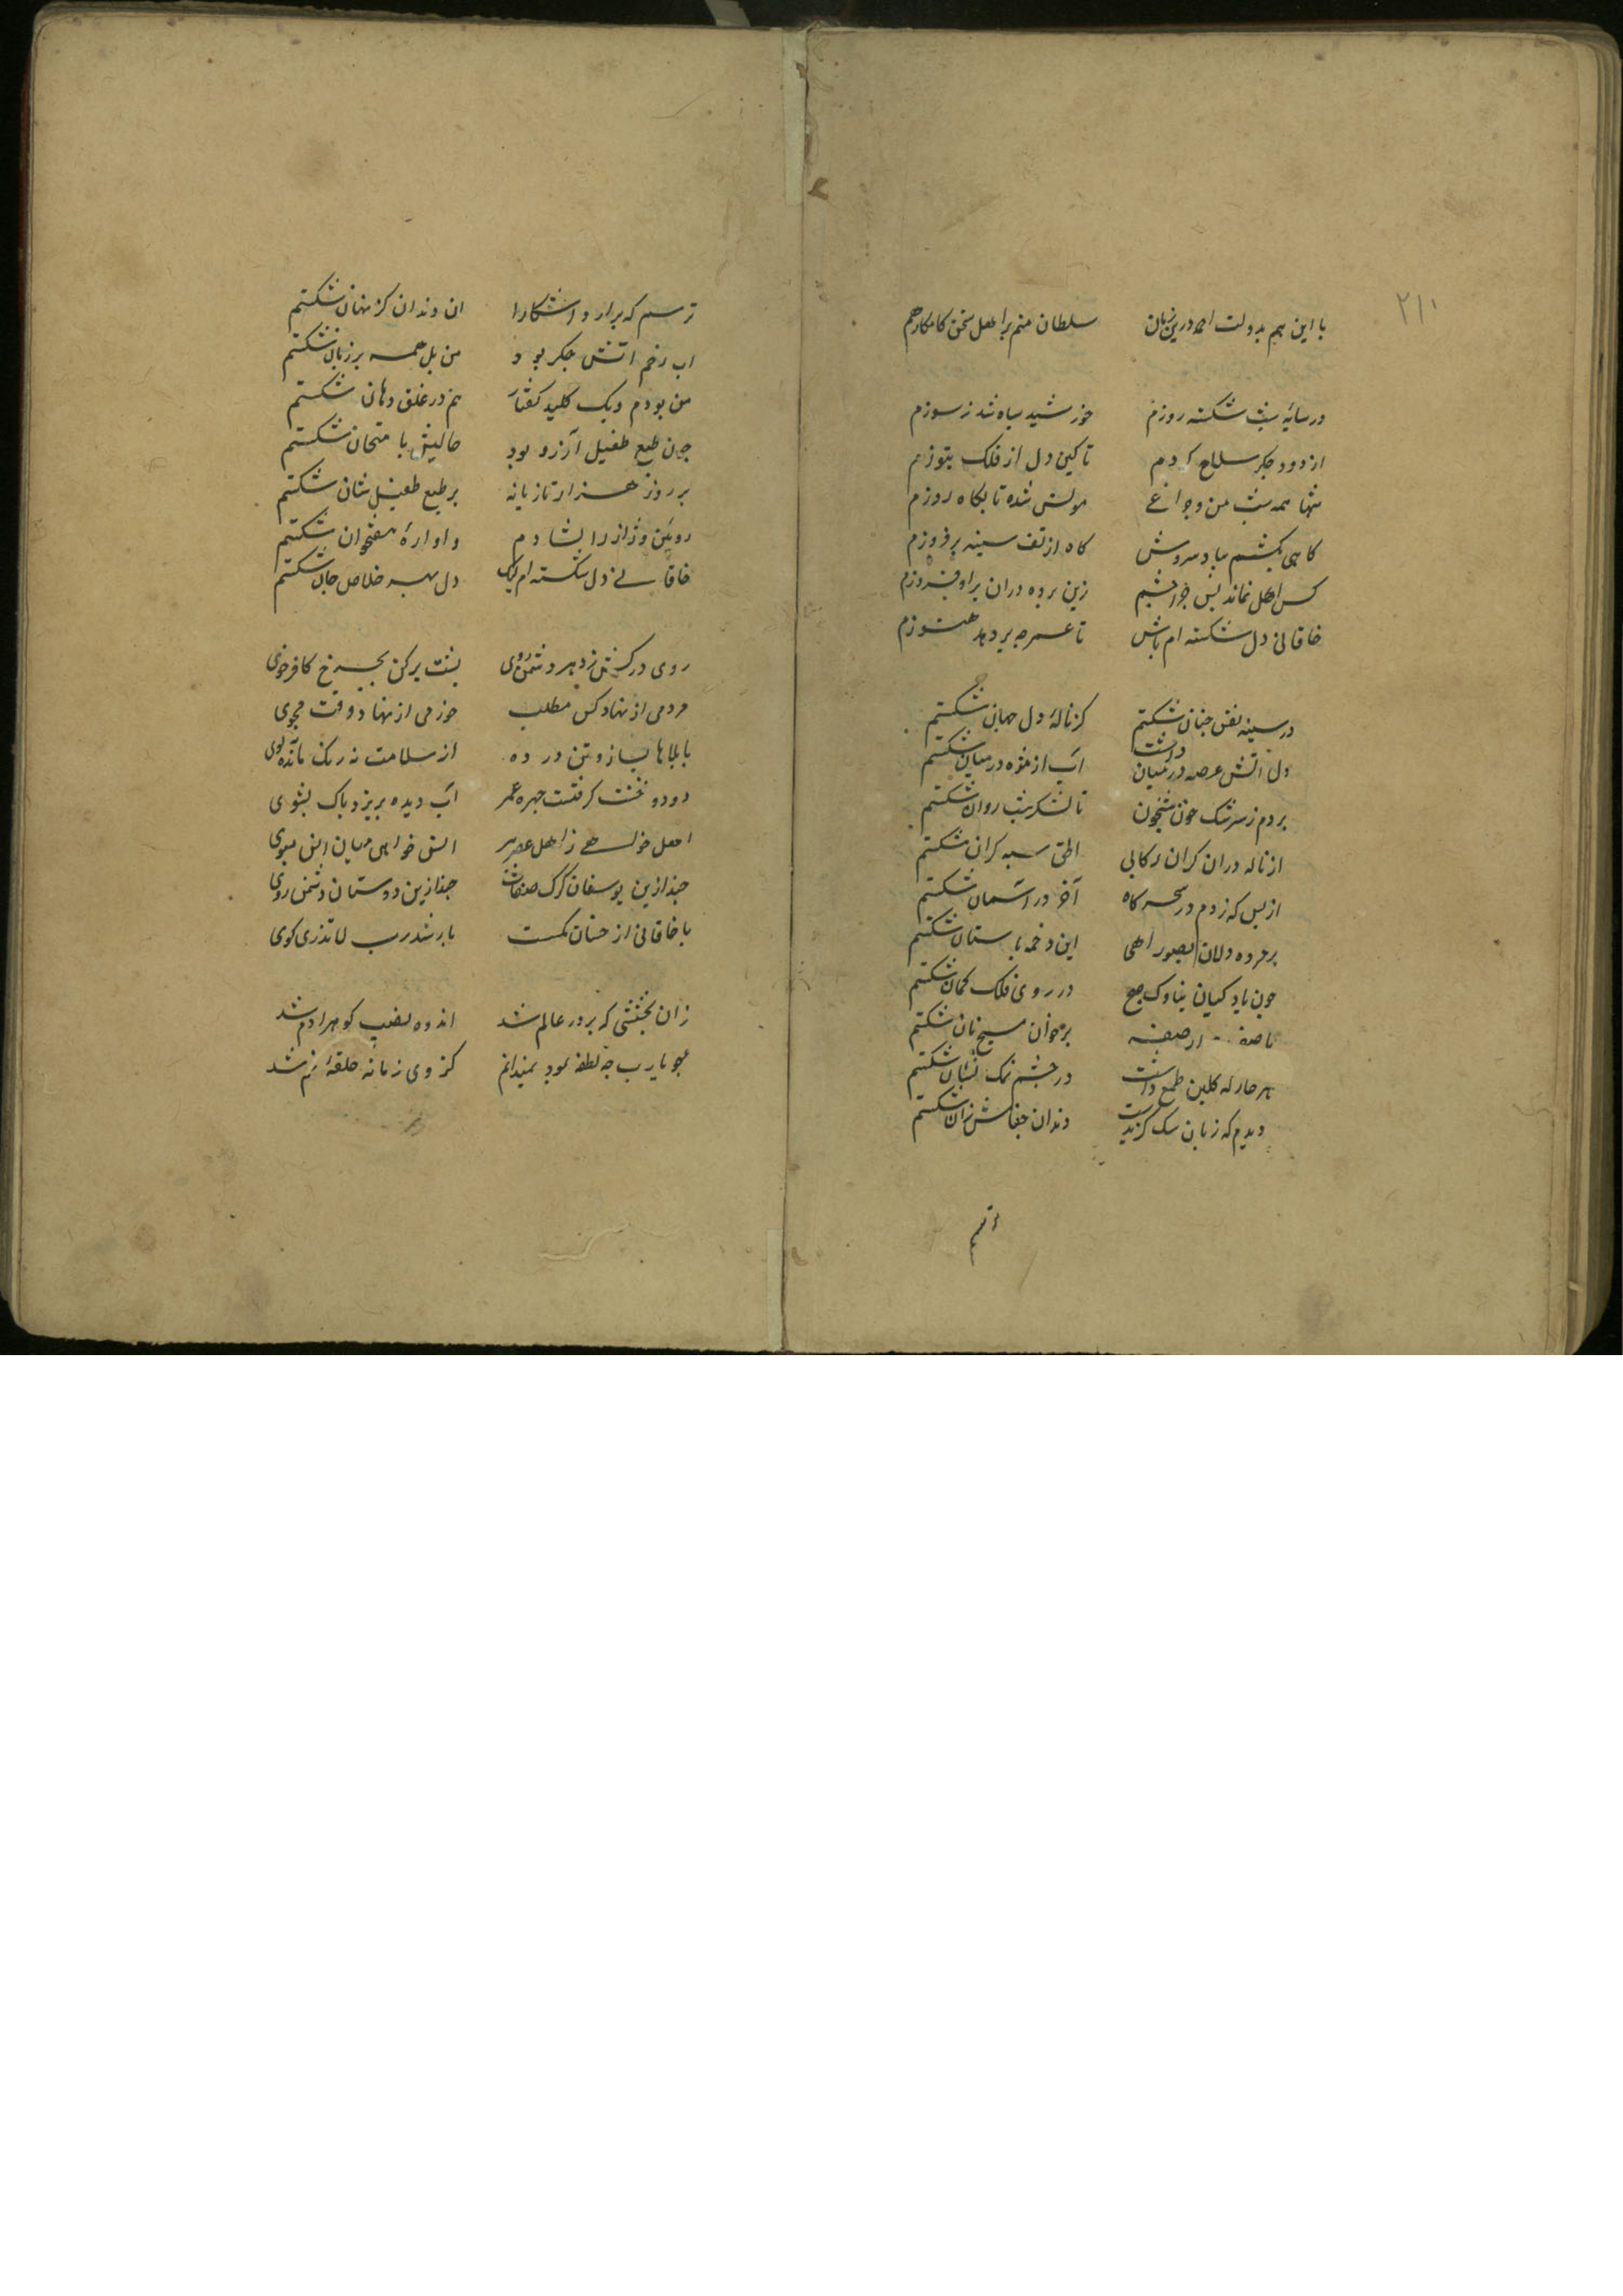 ۲۱۰
با این همه بدولت احمد درین زمان سلطان منم بر اهل سخن کامکار هم
در سایه شب شکسته روزم خورشید سیاه شد ز سوزم
از دود جکر سلاح کردم تا کین دل از فلک بتوزم
تنها همه شب من و جراغی مونس شده تا بکاه روزم
کاهی بکشم بباد سردش کاه از تف سینه برفروزم
کس اهل نماند بس جرا جشم زین برده دران براو بدوزم
خاقانی دل شکسته ام باش تا عمر جه بر دهد هنوزم
در سینه نفس جنان شکستم کز ناله دل جهان شکستم
دل اتش عرصه در میان داشت آب از مژه در میان شکستم
بردم ز سرشک خون شبیخون تا لشکر شب روان شکستم
از ناله دران کران رکابی الحق سبه کران شکستم
از بس که زدم در سحرکاه آخر در آسمان شکستم
بر مرده دلان بصور آهی این دخمه باستان شکستم
جون باد کیان بناوک صبح در روی فلک کمان شکستم
از صفه بر خوان مسیح نان شکستم
هر خار که کلبن طمع داشت در جشم نمک نشان شکستم
دیدم که زبان سک کزیدست دندان جفاش ازان شکستم
ترسم
ترسم که برارد آشکارا ان دندان کز نهان شکستم
اب رخم اتش جکر بود من بل همه بر زبان شکستم
من بودم ویک کلید کفتار هم در غلق دهان شکستم
جون طبع طفیل آرزو بود حالیش با متحان شکستم
هر روز هزار تازیانه بر طبع طفیل شان شکستم
رویین دژ آز را بشادم و اواره هفتخوان شکستم
خاقانی دل شکسته ام لیک دل بهر خلاص جان شکستم
روی درکش ز دهر دشمن روی بشت برکن بجرخ کافر خوی
مردمی از نهاد کس مطلب خرمی از نهاد وقت مجوی
با بلاها بساز و تن در ده از سلامت نه رنک مانده نه بوی
دود وحشت کرفت جهره عمر آب دیده بریز و باک بشوی
اهل خواهی ز اهل عصر ببر انس خواهی میان انس مبوی
جند ازین یوسفان کرک صفات جند ازین دوستان دشمن روی
با خاقانی از خسان بکسست
زان بخششی که بر در عالم شد اندوه نصیب کوهر ادم شد
یا رب جه لطفه بود نمیدانم کز وی زمانه حلقه